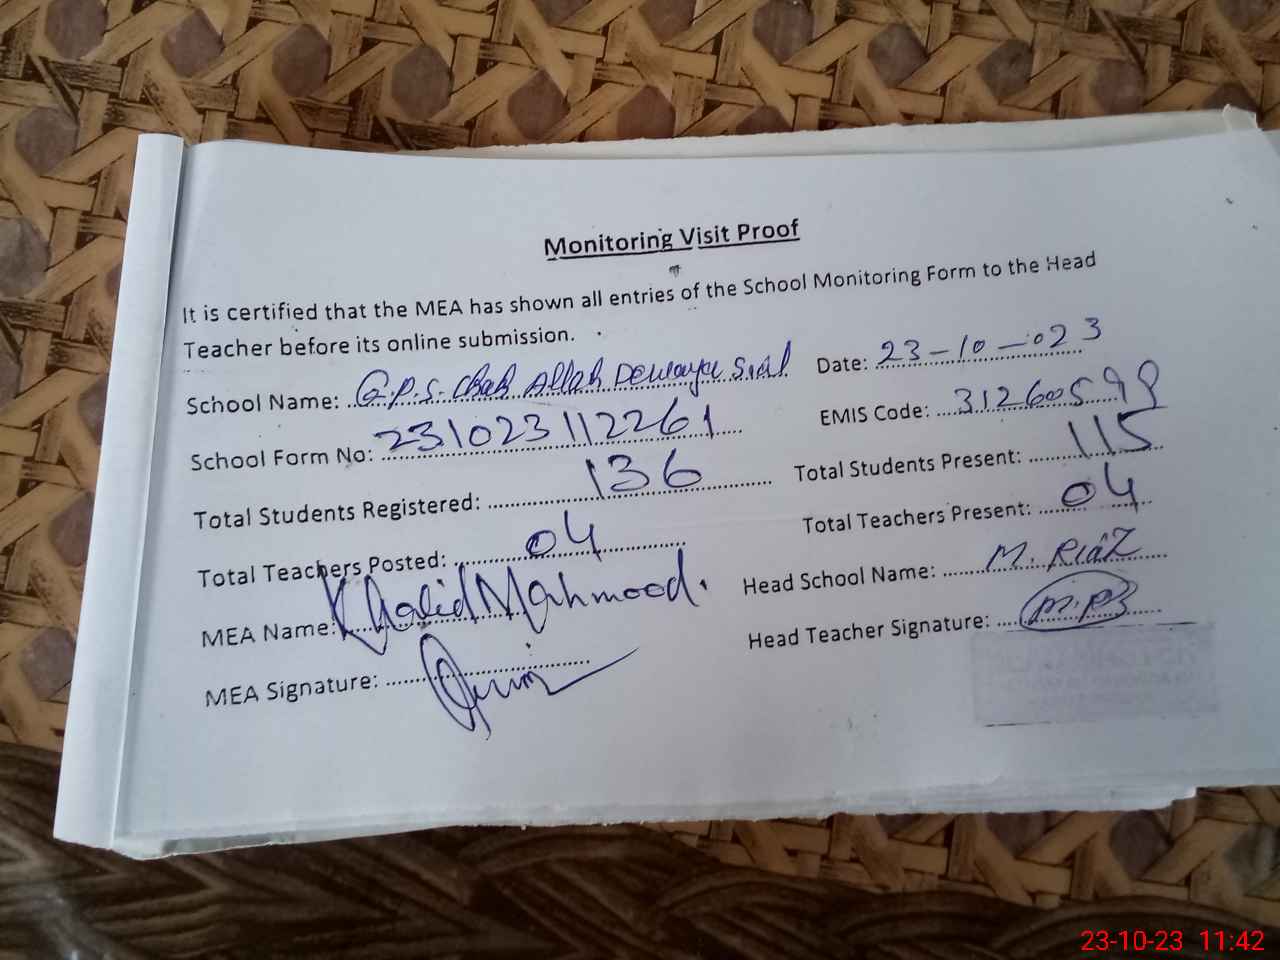 Monitoring Visit Proof
It is certified that the MEA has shown all entries of the School Monitoring Form to the Head
Teacher before its online submission.
School Name: G.P.S. Chah Allah Dewaya Sial Date: 23-10-023
School Form No: 231023112261 EMIS Code: 31260599
Total Students Registered: 136 Total Students Present: 115
Total Teachers Posted: 04 Total Teachers Present: 04
MEA Name: Khalid Mahmood. Head School Name: M. Riaz
MEA Signature: Head Teacher Signature:
23-10-23 11:42